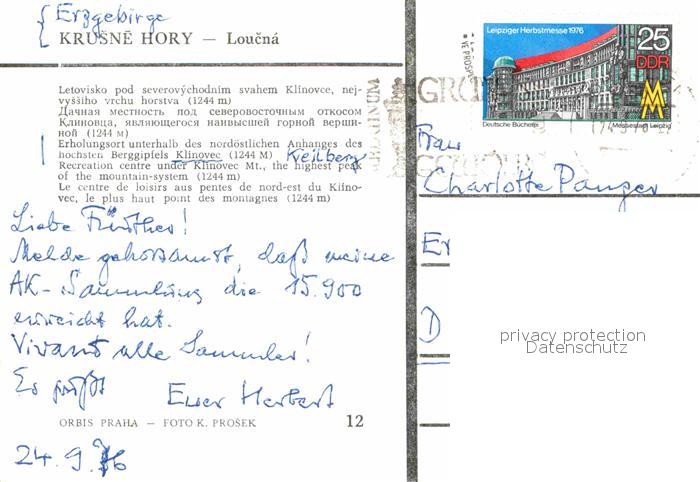 Erzgebirge
KRUŠNÉ HORY — Loučná
Letovisko pod severovýchodním svahem Klínovce, nej-
vyššího vrchu horstva (1244 m)
Дачная местность под северовосточным откосом
Клиновца, являющегося наивысшей горной верши-
ной (1244 м)
Erholungsort unterhalb des nordöstlichen Anhanges des
höchsten Berggipfels Klínovec (1244 M) Keilberg
Recreation centre under Klínovec Mt., the highest peak
of the mountain-system (1244 m)
Le centre de loisirs aux pentes de nord-est du Klíno-
vec, le plus haut point des montagnes (1244 m)
Liebe
Melde gehorsamst, daß meine
AK-Sammlung die 15.900
erreicht hat.
Vivant alle Sammler!
Es grüßt Euer Herbert
ORBIS PRAHA — FOTO K. PROŠEK 12
24.9.76
Leipziger Herbstmesse 1976
25
DDR
MM
Deutsche Bücherei
Messestadt Leipzig
Frau
Charlotte Panger
Er
D
privacy protection
Datenschutz